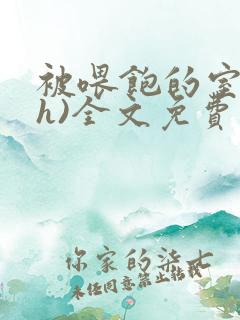 被喂飽的室
h)全文免費
你家的柒七
未经同意禁止转载